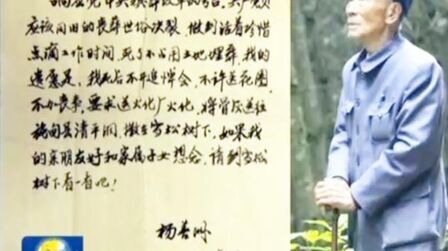 应该同旧的丧葬世俗决裂 做到活着珍惜
点滴工作时间，死了不占用土地埋葬，我的
遗愿是，我死后不开追悼会，不许送花圈
不办丧事，要求送火化厂火化，将骨灰送往
施甸县清平洞，撒在雪松树下，如果我
的亲朋友好和家属子女想念，请到雪松
树下看一看吧！
杨善洲